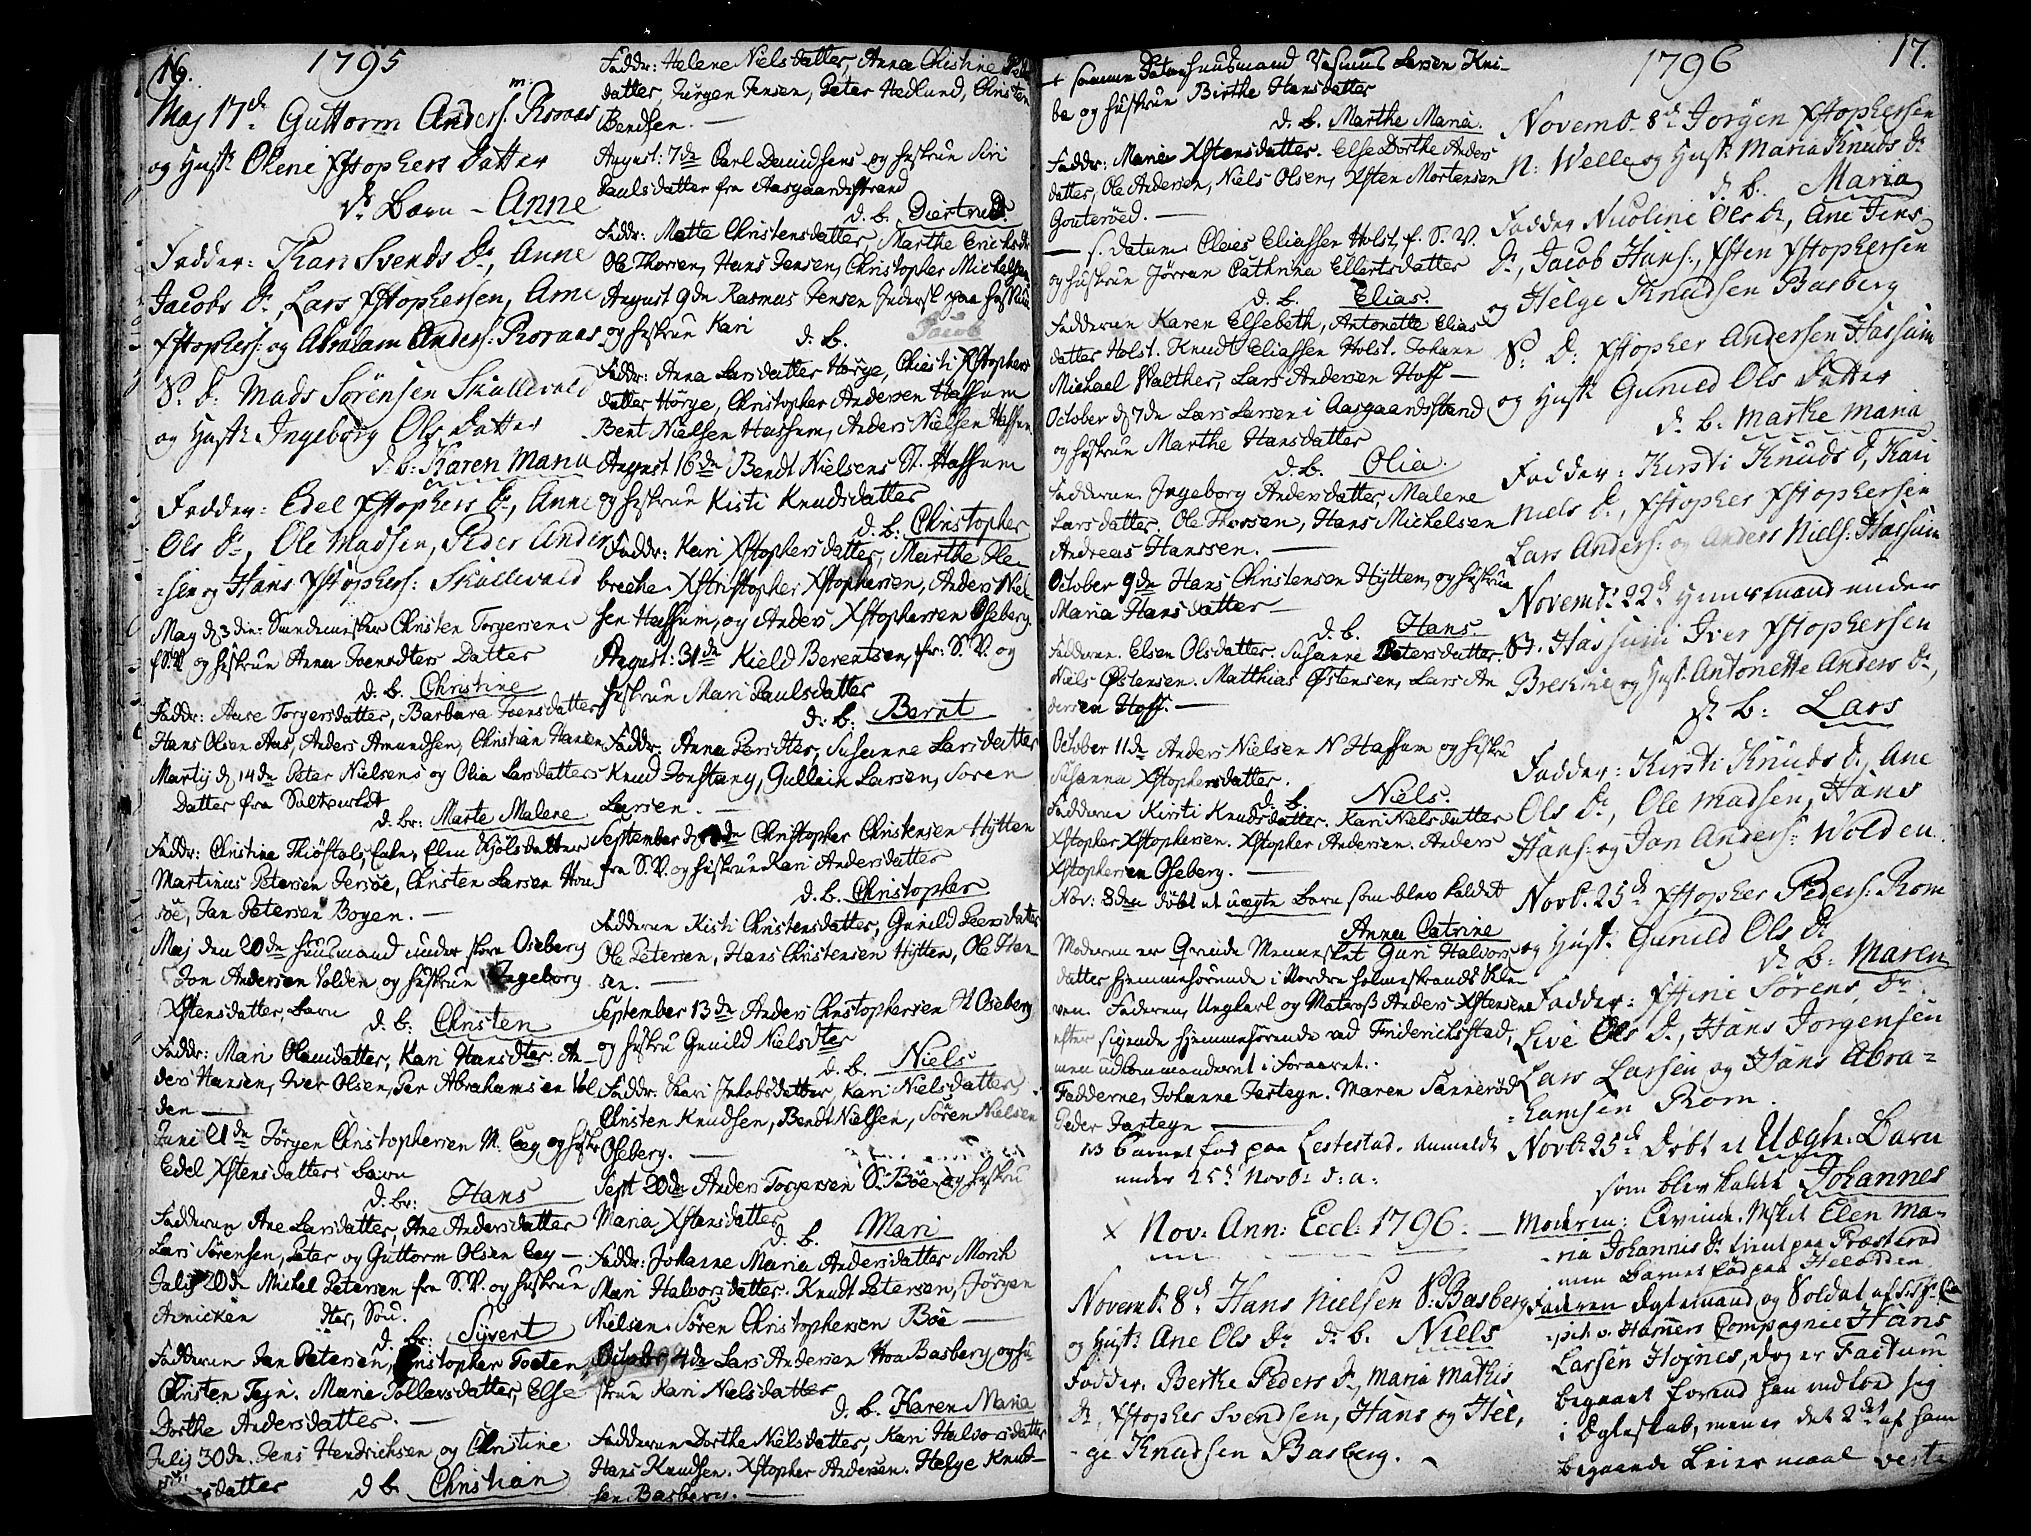 16. 1795
May 17de Guttorm Anders. m: Roraas
og Hustr. Olene Xstophers Datter
d. Barn - Anne
Fadder: Kari Svends Dr, Anne
Jacobs Dr, Lars Xstophersen, Arne
Xstophers: og Abraham Anders: Roraas
S. D: Mads Sørensen Skallevald
og Hustr. Ingeborg Ols Datter
d. b: Karen Maria
Fadder: Edel Xstophers Dr, Anne
Ols Dr, Ole Madsen, Peder Ander
sen og Hans Xstophers: Skallevald
May d 3die: Christen Torgersens
f S.V og hustrun Anna Datter
d. b. Christine
Faddr: Aase Torgersdatter, Barbara Toensdatter
Hans Olsen Aas, Anders Amundsen, Christian Hansen
Martij d. 14de Peter Nielsens og Olia Larsdatters
Datter fra
d. br: Marte Malene
Faddr: Christine Elen Kjølsdatter
Martinus Petersen Jersøe, Christen Larsen Hou
søe, Jan Petersen Bogen. —
Maj den 20de Huusmand under store Oseberg
Jon Andersen Volden og hustrun Ingeborg
Xstensdatter, Barn
d. b: Christen
Faddr: Mari Olausdatter, Kari Hansdter, An
ders Hansen, Iver Olsen, Per Abrahamsen Vol
den —
Juni 21de Jørgen Christophersen M. Eeg og hustr
Edel Xstensdatters barn
d. br: Hans
Fadderne Ane Larsdatter, Ane Andersdatter
Lars Sørensen, Peter og Guttorm Olsen Eeg —
Julij 20de Michel Petersen fra S.V. og hustrun
Annicken dter, Søn.
d. br: Syvert
Fadderne Jan Petersen, Christopher Toeten
Christen Tegn. Marie Tollevsdatter, Else
Dorthe Andersdatter. —
Julij 30de. Jens Hendrichsen og Christine
datter d b. Christian
Faddr: Helene Nielsdatter, Anna Christine Peders
datter, Jürgen Jensen, Peter Hedlund, Christen
Bendsen. —
August: 7de Carl Davidsens og hustrun Siri
Paulsdatter fra Aasgaardsstrand
d. b. Diertrud.
Faddr: Mette Christensdatter, Marthe Erichsdr
Ole Thorsen, Hans Jensen, Christopher Michelsen
August 9de Rasmus Jensen
og hustrun Kari d. b. Jacob
Faddr: Anna Larsdatter Hørge, Christi Xstophers
datter Horge, Christopher Andersen Hassum
Bent Nielsen Hassum, Anders Nielsen Hassum.
August 16de Bendt Nielsens St. Hassum
og hustrun Kisti Knudsdatter
d. b: Christopher
Faddr: Kari Xstophersdatter, Marthe
Xstophersen, Anders Niel
sen Hassum, og Anders Xstophersen Oseberg.
August: 31de Kield Berentsen, fr: S.V. og
hustrun Mari Paulsdatter
d: b. Bernt
Faddr: Anna Larsdter, Susanne Larsdatter
Knud Gullein Larsen, Soren
Larsen. —
September d Christopher Christensen Hytten
fra S.V. og hustrun Kari Andersdatter
d. b. Christopher
Fadderne Kisti Christensdatter, Gunild Peersdatter
Ole Petersen, Hans Christensen Hytten, Ole Han
sen. —
September 13de Anders Christophersen Oseberg
og hustru Gunild Nielsdter
d. b. Niels
Faddr: Kari Jakobsdatter, Kari Nielsdatter
Christen Knudsen, Bendt Nielsen, Søren Nielsen
Oseberg. —
Sept 20de Anders Torgersen S. Bøe og hustru
Maria Xstensdatter
d. b. Mari
Faddr: Johanne Maria Andersdatter Morik
Mari Halvorsdatter. Knudt Petersen, Jørgen
Nielsen. Sören Christophersen Böe —
October 4de Lars Andersen Hoa Basberg og hu
strun Kari Nielsdatter
d. b. Karen Maria
Fadderne Dorthe Nielsdatter, Kari Halvorsdatter
Hans Knudsen. Xstopher Andersen. Helge Knud-
sen Basberg. —
1796 17.
samme Datum huusmand Rasmus Larsen Kni-
be og hustrun Birthe Hansdatter
d. b. Marthe Maria.
Faddr: Maria Xstensdatter. Else Dorthe Anders
datter, Ole Andersen, Niels Olsen, Xsten Mortensen
Gouterød. —
— s. Datum Claies Eliassen Holst, f. S.V.
og hustrun Jørran Cathrina Ellertsdatter
d. b. Elias.
Fadderne Karen Elsebeth, Antonette Elias
datter Holst. Knudt Eliassen Holst. Johann
Michael Walther, Lars Andersen Hoff —
October d 7de Lars Larsen i Aasgaardstrand
og hustrun Marthe Hansdatter
d. b. Olia.
Fadderne Ingeborg Andersdatter, Malene
Larsdatter. Ole Thorsen, Hans Mickelsen
Andreas Hanssen. —
October 9de Hans Christensen Hytten, og hustrun
Maria Hansdatter —
d. b. Hans.
Fadderne. Elsen Olsdatter. Susanne Petersdatter.
Niels Østensen. Matthias Østensen, Lars An
dersen Hoff. —
October 11de Anders Nielsen N Hassum og hustru
Susanna Xstophersdatter.
d. b. Niels.
Fadderne Kirsti Knudsdatter. Kari Nielsdatter
Xstopher Xstophersen. Xstopher Andersen. Anders
Xstophersen Oseberg. —
Nov: 8den döbt et uægte Barn som blev kaldet
Anna Catrine
Moderen er Qvinde Mennesket Guri Halvors
datter hjemmehörende i Nordre Holmestrands
ven. Faderen, Ungkarl og Matros Anders Xstensen
efter sigende hjemmehörende ved Friderichsstad,
men udcommanderet i Foraaret.
Fadderne, Johanne Jartegn. Maren Sannerød
Peder Jartegn —
NB Barnet fød paa Lestestad. Anmeldt
under 25de Novbr d: a:
x Nov: Ann: Eccl: 1796. —
Novembr 8d Hans Nielsen N: Basberg
og Hustr Ane Ols Dr d. b. Niels
Fadder. Berthe Peders Dr, Maria Mathis
Dr, Xstopher Svendsen, Hans og Hel,
ge Knudsen Basberg.
Novembr 8de Jorgen Xstophersen
N: Welle og Hustr Maria Knuds Dr
d. b. Maria
Fadder Nicoline Ols Dr, Ane Jens
Dr, Jacob Hans:, Xsten Xstophersen
og Helge Knudsen Basberg
S. D: Xstopher Andersen Hassum
og Hustr Gunild Ols Datter
d. b. Marthe Maria
Fadder: Kirsti Knuds Dr, Kari
Niels Dr, Xstopher Xstophersen
Lars Anders: og Anders Niels: Hassum
Novembr 22d Huusmand under
St. Hassum Iver Xstophersen
Brekke og Hust: Antonette Anders Dr,
d. b: Lars
Fadder: Kirsti Knuds Dr, Ane
Ols Dr, Ole Madsen, Hans
Hans: og Jon Anders: Wolden.
Novb. 25d Xstopher Peders: Rom
og Hust. Gunild Ols Dr
d. b: Maren
Fadder: Stine Sörens Dr.
Live Ols Dr, Hans Jorgensen
Lars Larsen og Hans Abra-
hamsen Rom.
Novb: 25d Döbt et Uægte Barn
som blev kaldet Johannes
Moderen: Qvinde Mskt Elen Ma-
ria Johannis Dr tient paa Præsterød
men Barnet fød paa
Faderen Egtemand og Soldat af
Compagnie Hans
Larsen Hoines, dog er Factum
begaaet forend han indlod sig
i Egteskab, men er det 2det af ham
begaaede Leiermaal verte